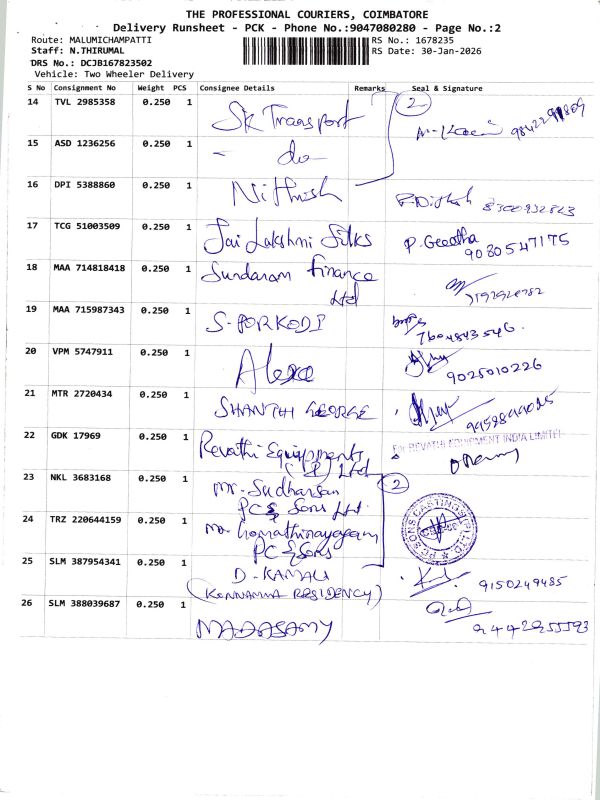 THE PROFESSIONAL COURIERS, COIMBATORE
Delivery Runsheet - PCK - Phone No.:9047080280 - Page No.:2
Route: MALUMICHAMPATTI
RS No.: 1678235
Staff: N.THIRUMAL
RS Date: 30-Jan-2026
DRS No.: DCJB167823502
Vehicle: Two Wheeler Delivery
S No Consignment No Weight PCS Consignee Details Remarks Seal & Signature
14 TVL 2985358 0.250 1 SK Transport 2
15 ASD 1236256 0.250 1 - do -
16 DPI 5388860 0.250 1 Nithish
17 TCG 51003509 0.250 1 Jai Lakshmi Silks P. Geetha
9080547175
18 MAA 714818418 0.250 1 Sundaram Finance
Ltd
19 MAA 715987343 0.250 1 S. PORKODI
7604843546.
20 VPM 5747911 0.250 1 Alexa
9025010226
21 MTR 2720434 0.250 1 SHANTHI GEORGE
22 GDK 17969 0.250 1 Revathi Equipments
(I) Ltd
For REVATHI EQUIPMENT INDIA LIMITED
23 NKL 3683168 0.250 1 Mr. Sudharsan 2
PC & Sons Ltd.
24 TRZ 220644159 0.250 1 Mr. Gomathinayagam
PC & Sons
25 SLM 387954341 0.250 1 D. KAMALI
(KONNAMMA RESIDENCY) 9150249485
26 SLM 388039687 0.250 1 MADASAMY
9442955593